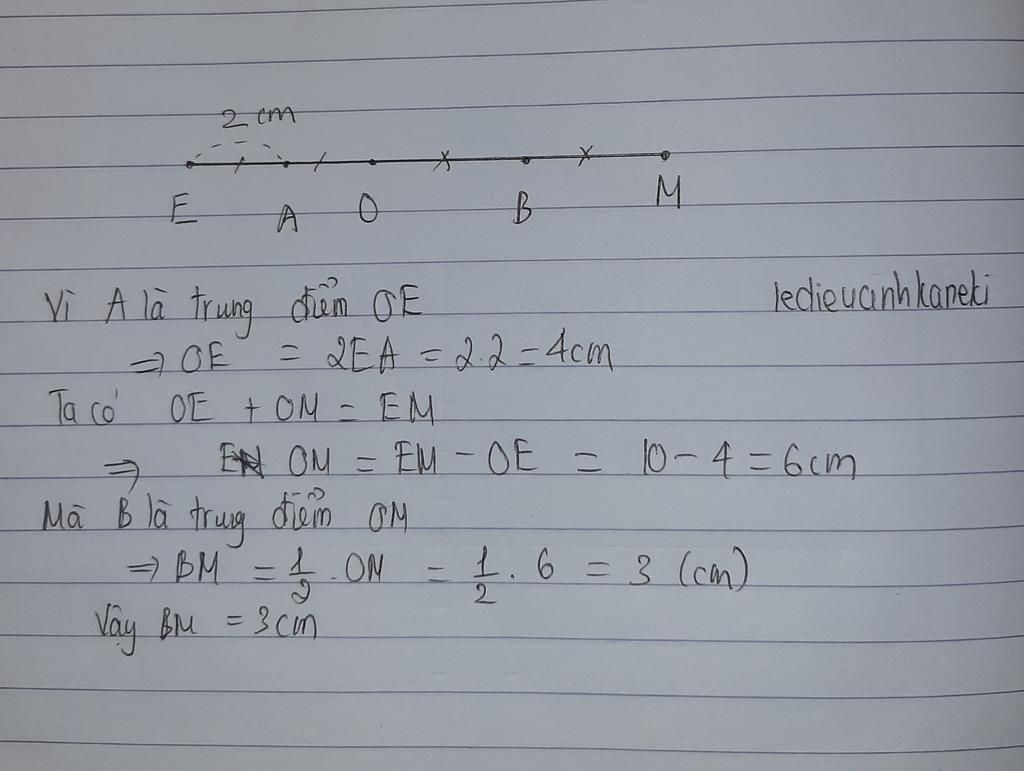 2 cm
E A O B M
Vì A là trung điểm OE
ledieuanhkaneki
⇒ OE = 2EA = 2.2 = 4cm
Ta có OE + OM = EM
⇒ OM = EM - OE = 10 - 4 = 6cm
Mà B là trung điểm OM
⇒ BM = 1/2 . OM = 1/2 . 6 = 3 (cm)
Vậy BM = 3cm